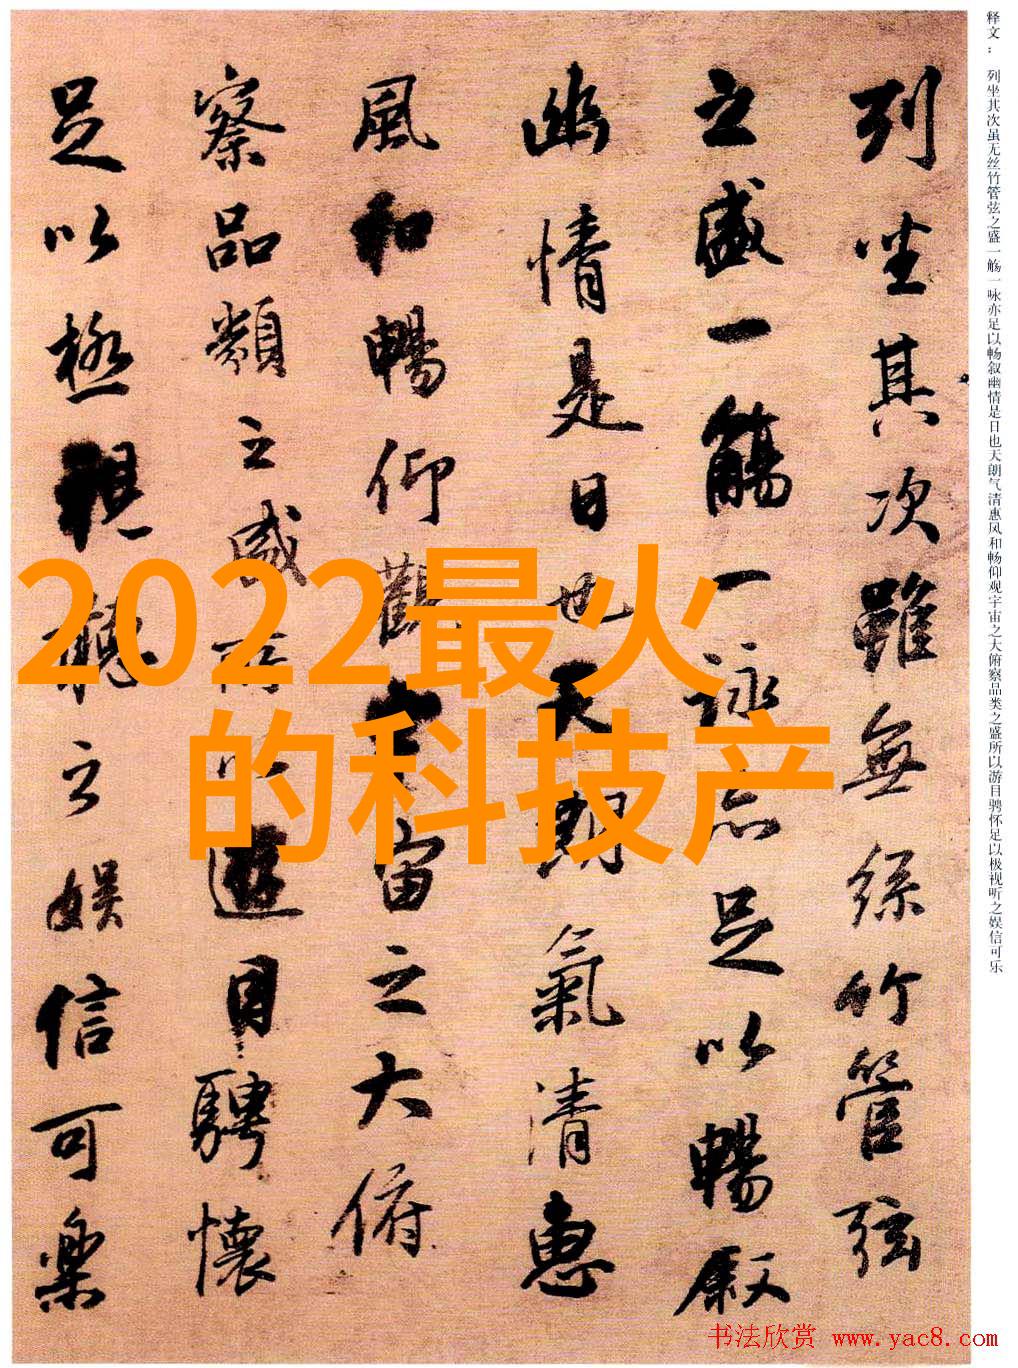 列坐其次雖無絲竹管弦
之盛一觴一詠亦足以暢叙
幽情是日也天朗氣清惠
風和暢仰觀宇宙之大俯
察品類之盛所以遊目騁懷
足以極視聽之娛信可樂
释文：列坐其次虽无丝竹管弦之盛一觞一咏亦足以畅叙幽情是日也天朗气清惠风和畅仰观宇宙之大俯察品类之盛所以游目骋怀足以极视听之娱信可乐
2022最火
的科技产
书法欣赏 www.yac8.com